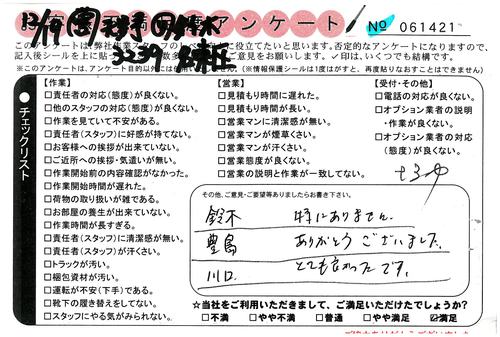 アンケート
No 061421
このアンケートは、弊社作業スタッフの
に役立てたいと思います。否定的なアンケートになりますので、
記入後シールを上に貼っ
ご意見をお願いします。✓印は、いくつでも結構です。
※このアンケートは、アンケート目的以外には
(※情報保護シールは1度はがすと、再度貼りなおすことはできません)
チェックリスト
【作業】
□責任者の対応(態度)が良くない。
□他のスタッフの対応(態度)が良くない。
□作業を見ていて不安がある。
□責任者(スタッフ)に好感が持てない。
□お客様への挨拶が出来ていない。
□ご近所への挨拶・気遣いが無い。
□作業開始前の内容確認がなかった。
□作業開始時間が遅れた。
□荷物の取り扱いが雑である。
□お部屋の養生が出来ていない。
□作業時間が長すぎる。
□責任者(スタッフ)に清潔感が無い。
□責任者(スタッフ)が汗くさい。
□トラックが汚い。
□梱包資材が汚い。
□運転が不安(下手)である。
□靴下の履き替えをしてない。
□スタッフにやる気がみられない。
【営業】
□見積もり時間に遅れた。
□見積もり時間が長い。
□営業マンに清潔感が無い。
□営業マンが煙草くさい。
□営業マンが汗くさい。
□営業態度が良くない。
□営業の説明と作業が一致してない。
【受付・その他】
□電話の対応が良くない。
□オプション業者の説明
・作業が良くない。
□オプション業者の対応
(態度)が良くない。
その他、ご意見・ご要望等ありましたらお書き下さい。
鈴木 特にありません。
豊島 ありがとうございました。
川口 とても良かったです。
☆当社をご利用いただきまして、ご満足いただけたでしょうか?
□不満 □やや不満 □普通 □やや満足 ☑満足